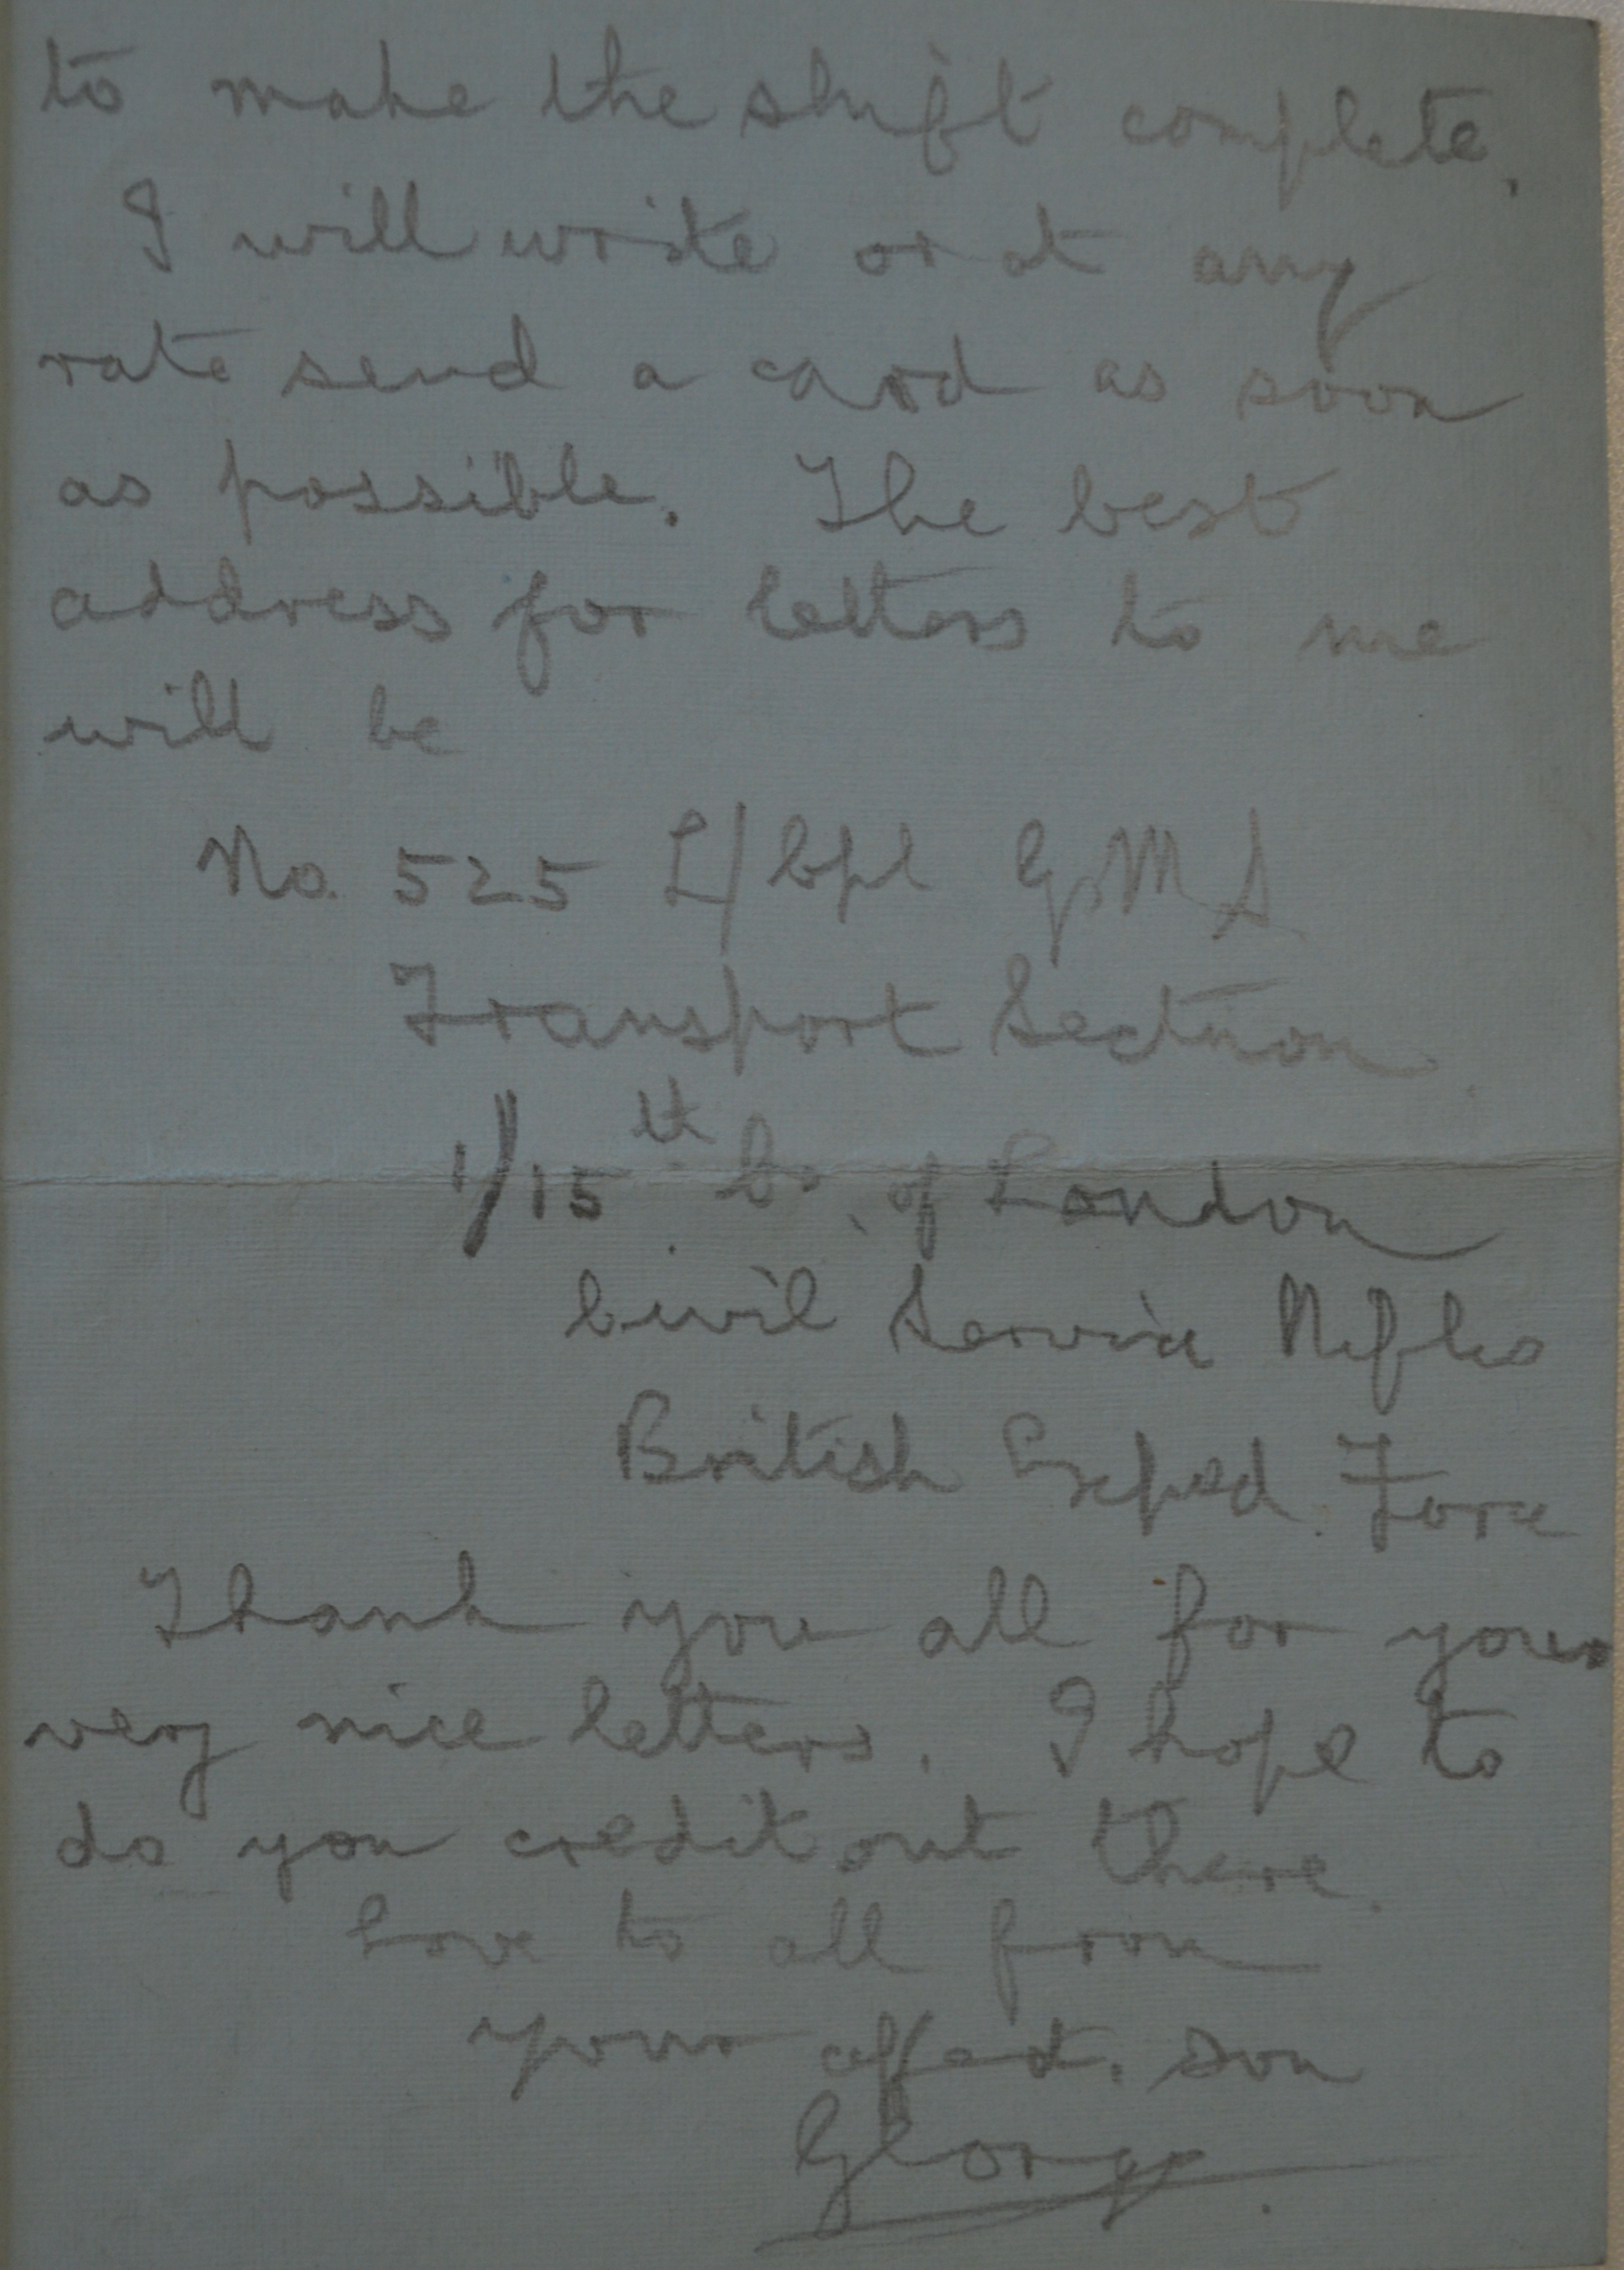 to make the shift complete.
I will write or at any
rate send a card as soon
as possible. The best
address for letters to me
will be
No. 525 L/Cpl G M S
Transport Section
1/15th Co. of London
Civil Service Rifles
British Exped. Force
Thank you all for your
very nice letters. I hope to
do you credit out there.
Love to all from
your affect. son
George